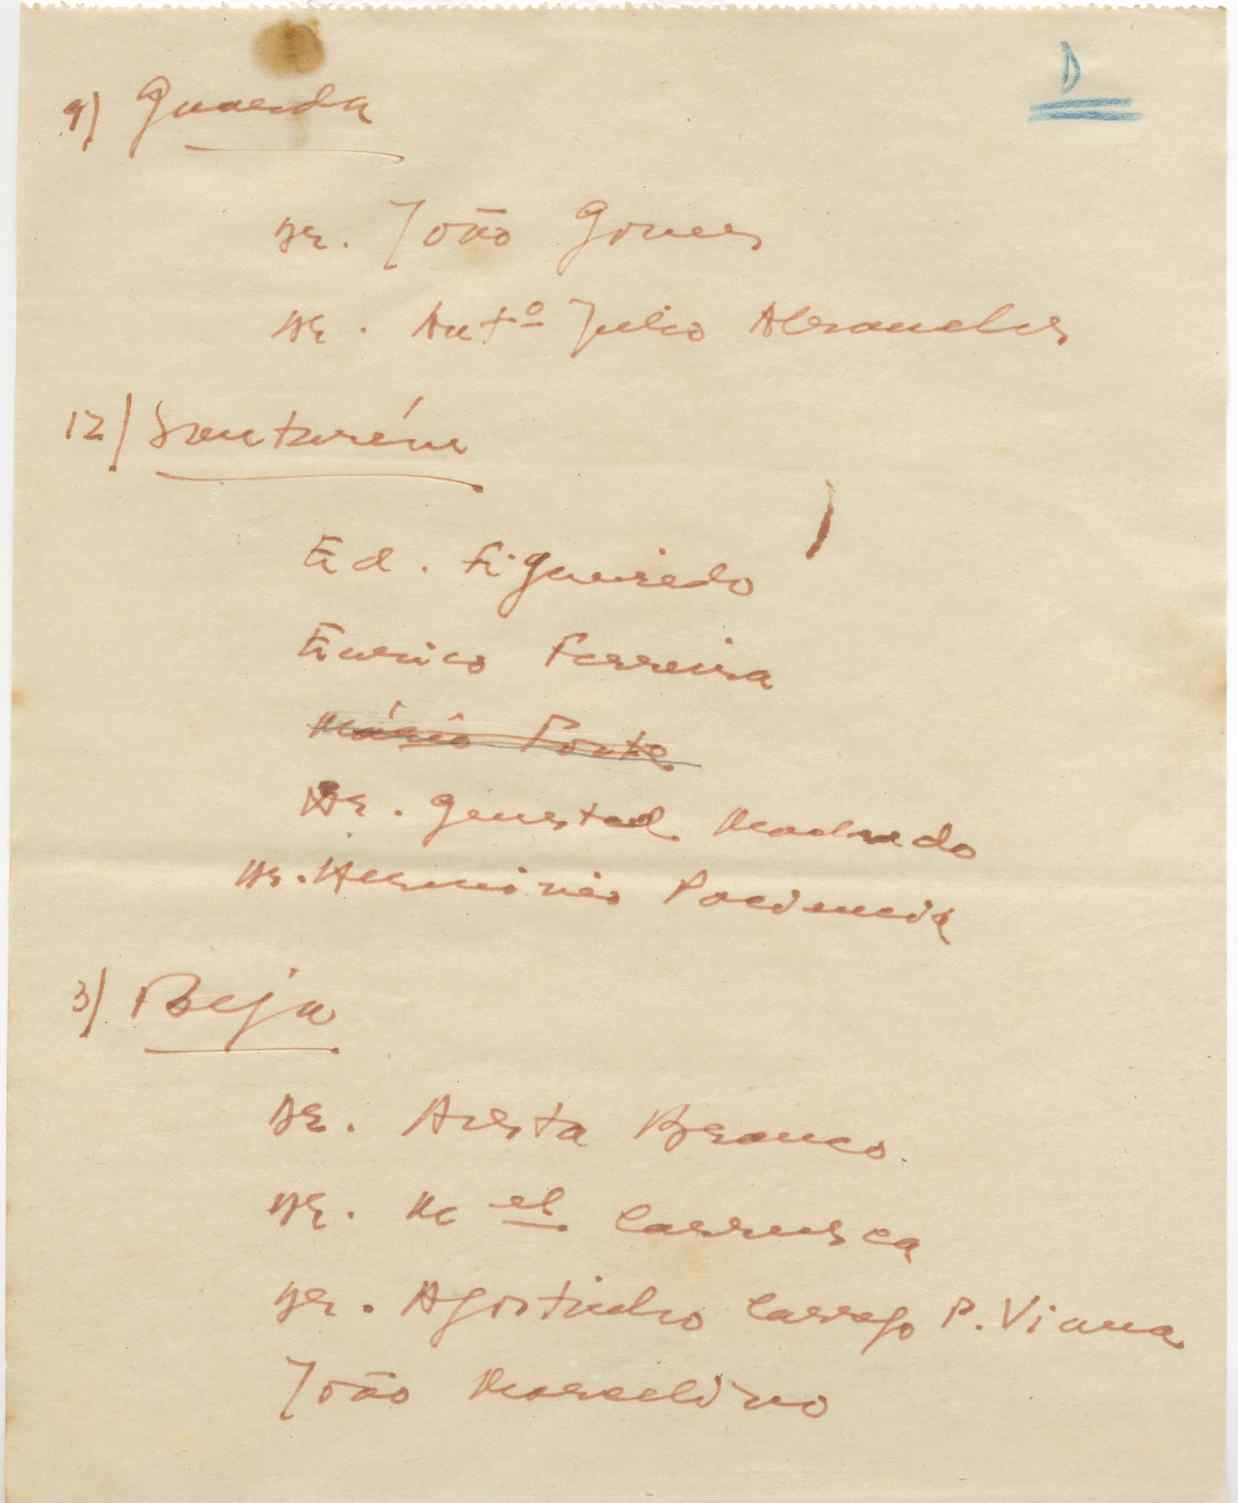 D
9) Guarda
Dr. João Gomes
Dr. Antº Julio Abranches
12) Santarém
Ed. Figueiredo
Eurico Ferreira
Mário Ponte
Dr. Genestal Machado
Dr. Herminio Paciencia
3) Beja
Dr. Aresta Branco
Dr. Mel Carrusca
Dr. Agostinho Carrejo P. Viana
João Marcelino